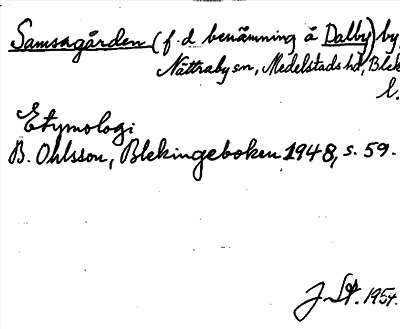 Samsagården (f.d benämning å Dalby) by,
Nättraby sn, Medelstads hd, Blek
l.
Etymologi
B. Ohlsson, Blekingeboken 1948, s. 59.
J 1954.